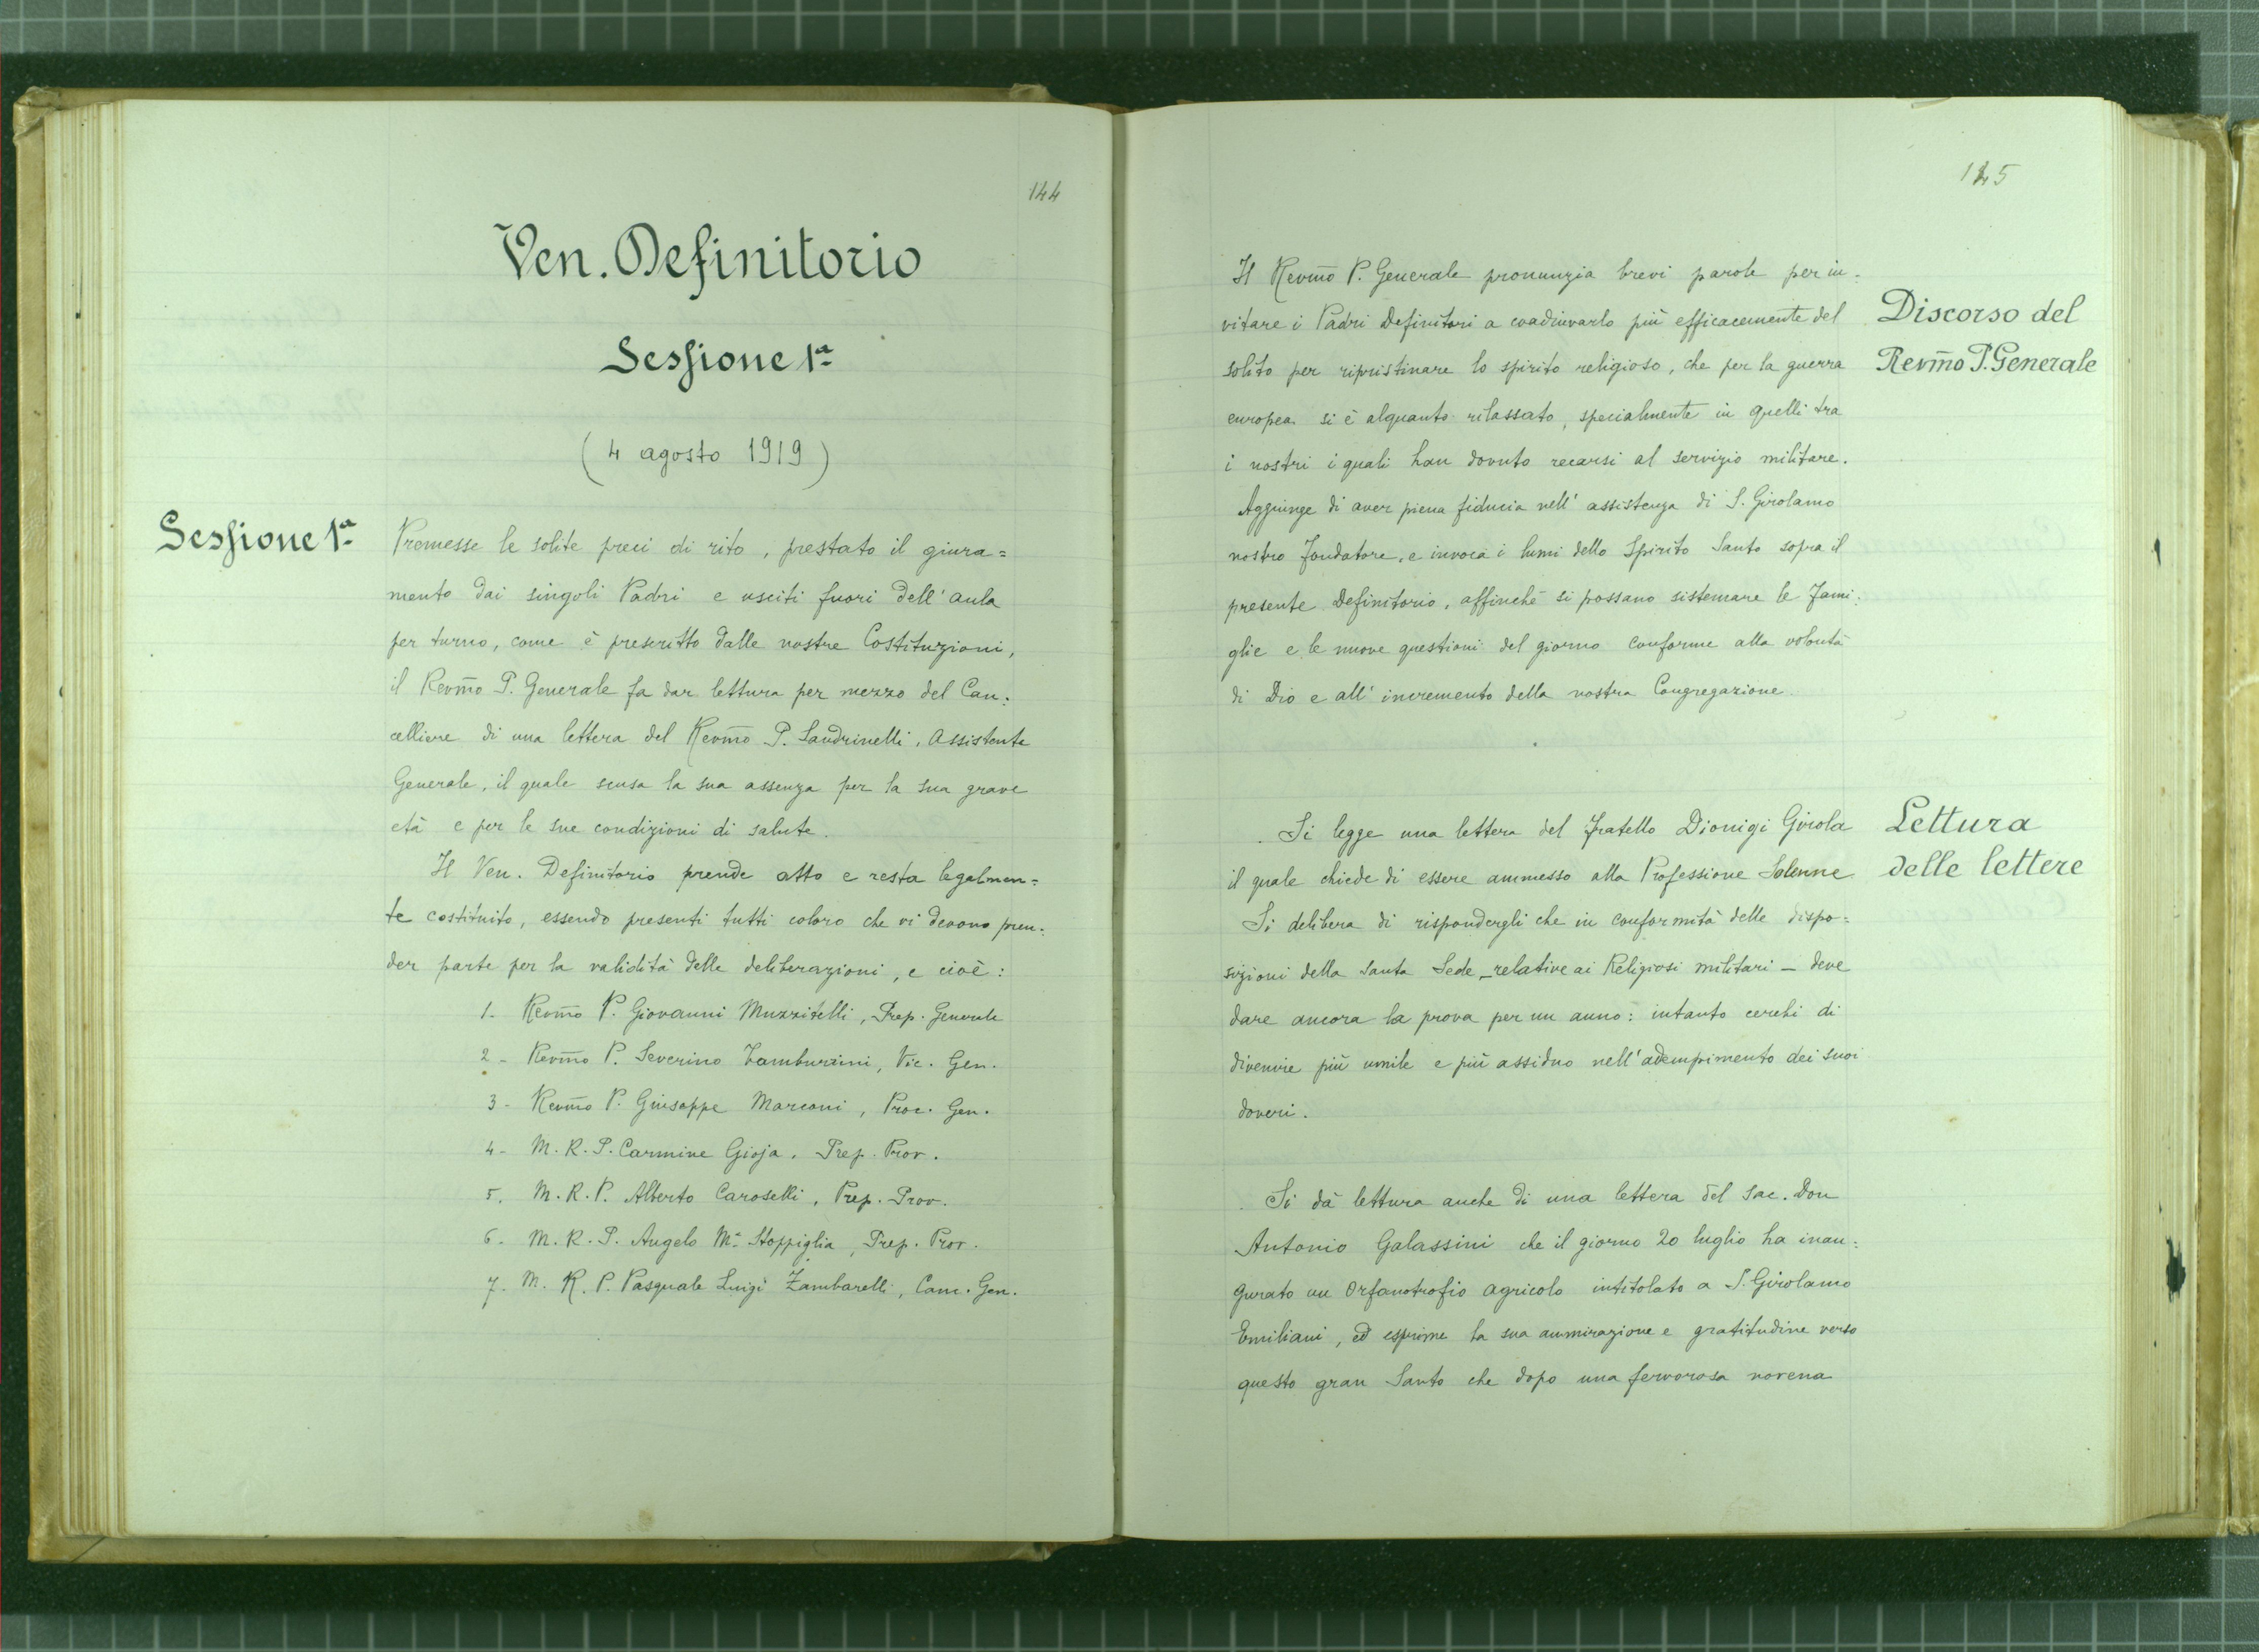 144
Ven. Definitorio
Sessione 1ª
(4 agosto 1919)
Sessione 1ª
Premesse le solite preci di rito, prestato il giura=
mento dai singoli Padri e usciti fuori dell'aula
per turno, come è prescritto dalle nostre Costituzioni,
il Revm̃o P. Generale fa dar lettura per mezzo del Can:
celliere di una lettera del Revm̃o P. Sandrinelli, Assistente
Generale, il quale scusa la sua assenza per la sua grave
età e per le sue condizioni di salute.
Il Ven. Definitorio prende atto e resta legalmen=
te costituito, essendo presenti tutti coloro che vi devono pren:
der parte per la validità delle deliberazioni, e cioè:
1- Revm̃o P. Giovanni Muzzitelli, Prep. Generale
2- Revm̃o P. Severino Tamburrini, Vic. Gen.
3- Revm̃o P. Giuseppe Marconi, Proc. Gen.
4- M. R. P. Carmine Gioja, Prep. Prov.
5. M. R. P. Alberto Caroselli, Prep. Prov.
6. M. R. P. Angelo Mª Stoppiglia, Prep. Prov.
7. M. R. P. Pasquale Luigi Zambarelli, Canc. Gen.
145
Il Revm̃o P. Generale pronunzia brevi parole per in:
vitare i Padri Definitori a coadiuvarlo più efficacemente del
solito per ripristinare lo spirito religioso, che per la guerra
europea si è alquanto rilassato, specialmente in quelli tra
i nostri i quali han dovuto recarsi al servizio militare.
Aggiunge di aver piena fiducia nell'assistenza di S. Girolamo
nostro Fondatore, e invoca i lumi dello Spirito Santo sopra il
presente Definitorio, affinché si possano sistemare le Fami:
glie e le nuove questioni del giorno conforme alla volontà
di Dio e all'incremento della nostra Congregazione.
Discorso del
Revm̃o P. Generale
Si legge una lettera del Fratello Dionigi Girola
il quale chiede di essere ammesso alla Professione Solenne
Si delibera di rispondergli che in conformità delle dispo=
sizioni della Santa Sede - relative ai Religiosi militari - deve
dare ancora la prova per un anno: intanto cerchi di
divenire più umile e più assiduo nell'adempimento dei suoi
doveri.
Lettura
delle lettere
Si dà lettura anche di una lettera del Sac. Don
Antonio Galassini che il giorno 20 luglio ha inau:
gurato un Orfanotrofio agricolo intitolato a S. Girolamo
Emiliani, ed esprime la sua ammirazione e gratitudine verso
questo gran Santo che dopo una fervorosa novena